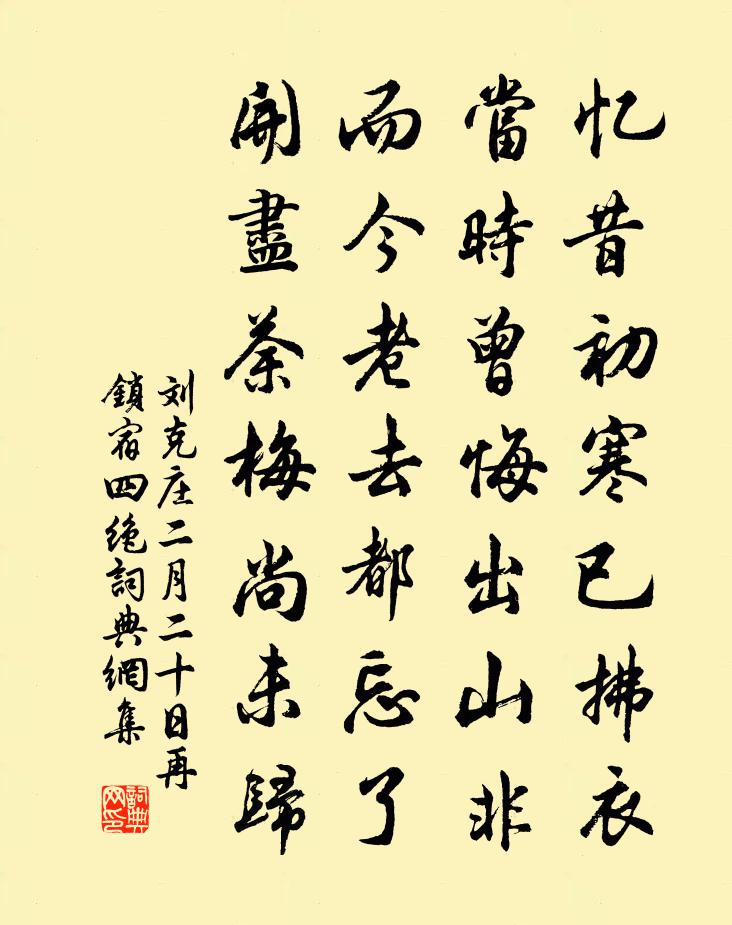 忆昔初寒已拂衣
當時曾悔出山非
而今老去都忘了
開盡荼梅尚未歸
刘克庄二月二十日再
鎖宿四绝詞典網集
詞典网印